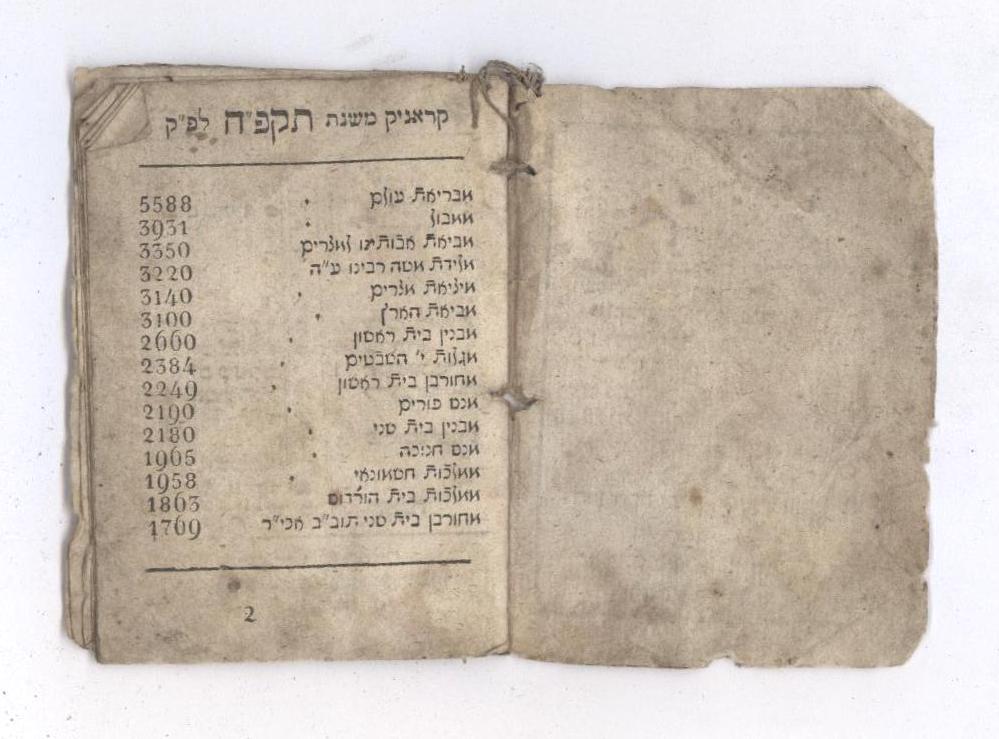 קראניק משנת תקפ״ח לפ״ק
מבריאת עולם 5588
ממבול 3931
מביאת אבותינו למצרים 3350
מלידת משה רבינו ע״ה 3220
מיציאת מצרים 3140
מביאת הארץ 3100
מבנין בית ראשון 2660
מגלות י׳ השבטים 2384
מחורבן בית ראשון 2249
מנס פורים 2190
מבנין בית שני 2180
מנס חנוכה 1965
ממלכות חשמונאי 1958
ממלכות בית הורדוס 1863
מחורבן בית שני תוב״ב אכי״ר 1769
2